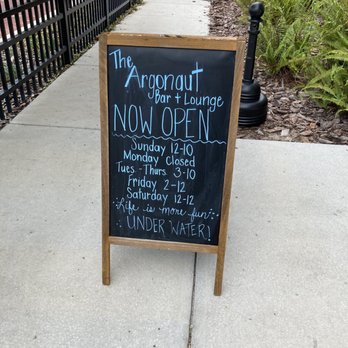 The
Argonaut
Bar + Lounge
NOW OPEN
Sunday 12-10
Monday Closed
Tues - Thurs 3-10
Friday 2-12
Saturday 12-12
Life is more fun
UNDER WATER!